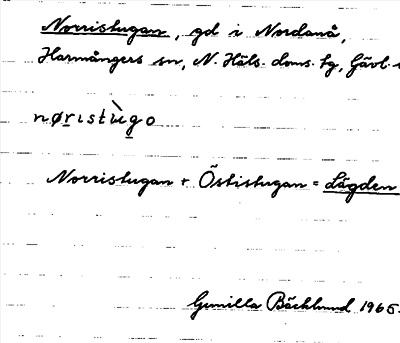 Norristugan, gd i Nordanå,
Harmångers sn, N. Häls. doms. tg, Gävl.
nøristùgo
Norristugan + Östistugan = Lägden
Gunilla Bäcklund 1965.